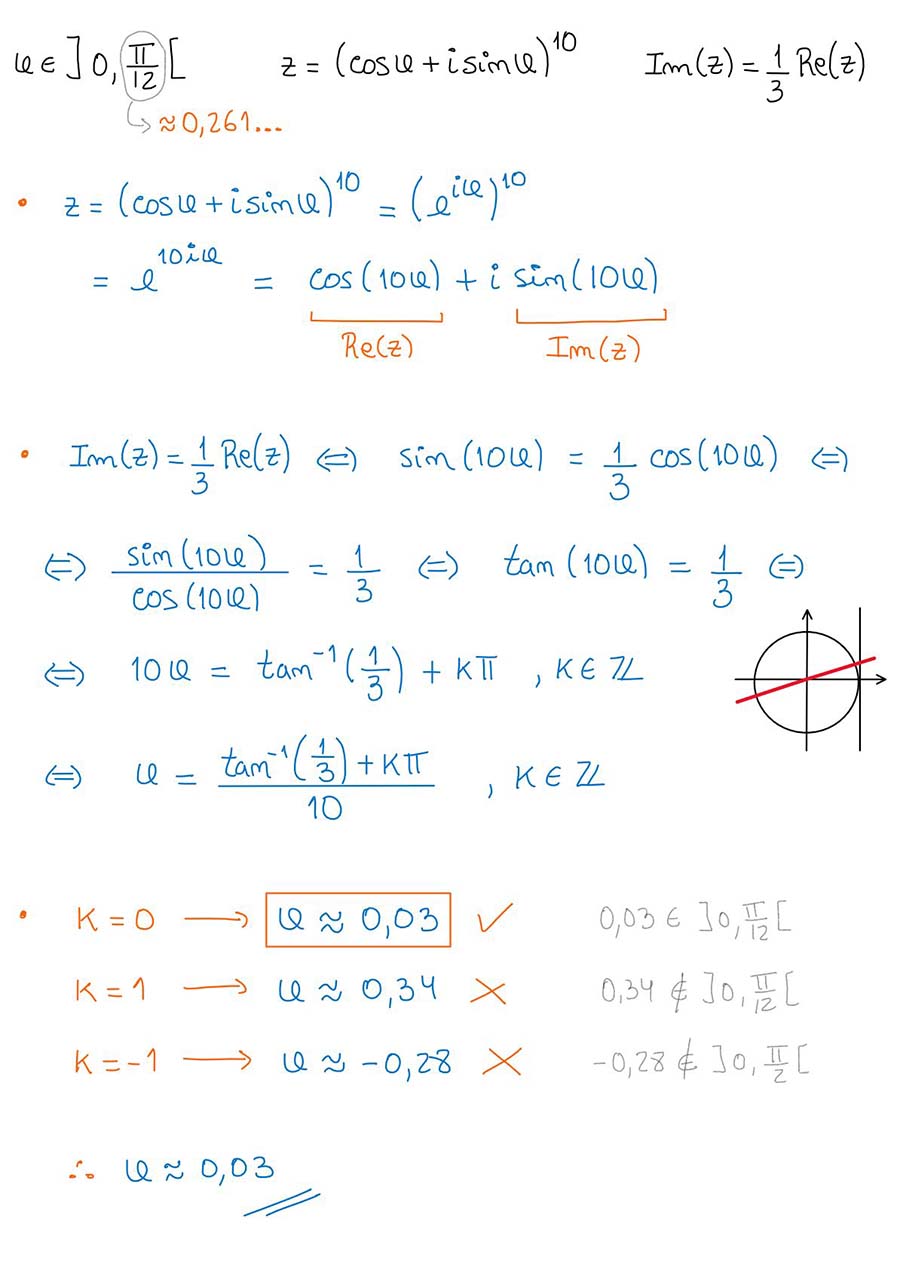 φ ∈ ]0, π/12[ z = (cosφ + i sinφ)^10 Im(z) = 1/3 Re(z)
↳ ≈ 0,261...
• z = (cosφ + i sinφ)^10 = (e^iφ)^10
= e^10iφ = cos(10φ) + i sin(10φ)
Re(z) Im(z)
• Im(z) = 1/3 Re(z) ⇔ sin(10φ) = 1/3 cos(10φ) ⇔
⇔ sin(10φ)/cos(10φ) = 1/3 ⇔ tan(10φ) = 1/3 ⇔
⇔ 10φ = tan⁻¹(1/3) + Kπ , K ∈ ℤ
⇔ φ = (tan⁻¹(1/3) + Kπ)/10 , K ∈ ℤ
• K = 0 → φ ≈ 0,03 ✓ 0,03 ∈ ]0, π/12[
K = 1 → φ ≈ 0,34 × 0,34 ∉ ]0, π/12[
K = -1 → φ ≈ -0,28 × -0,28 ∉ ]0, π/2[
∴ φ ≈ 0,03